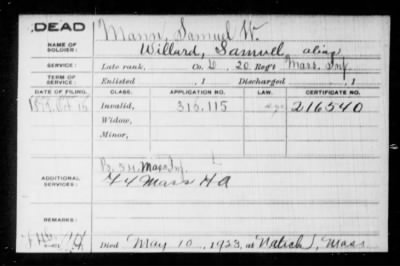 DEAD
Mann, Samuel W.
NAME OF SOLDIER: Willard, Samuel, alias
SERVICE: Late rank, Co. D, 20 Reg't Mass. Inf
TERM OF SERVICE: Enlisted , 1 Discharged , 1
DATE OF FILING. CLASS. APPLICATION NO. LAW. CERTIFICATE NO.
Oct 16 Invalid, 316.115 216540
Widow,
Minor,
Mass Inf.
ADDITIONAL SERVICES: Mass H A
REMARKS:
Died May 10, 1923, at Natick, Mass